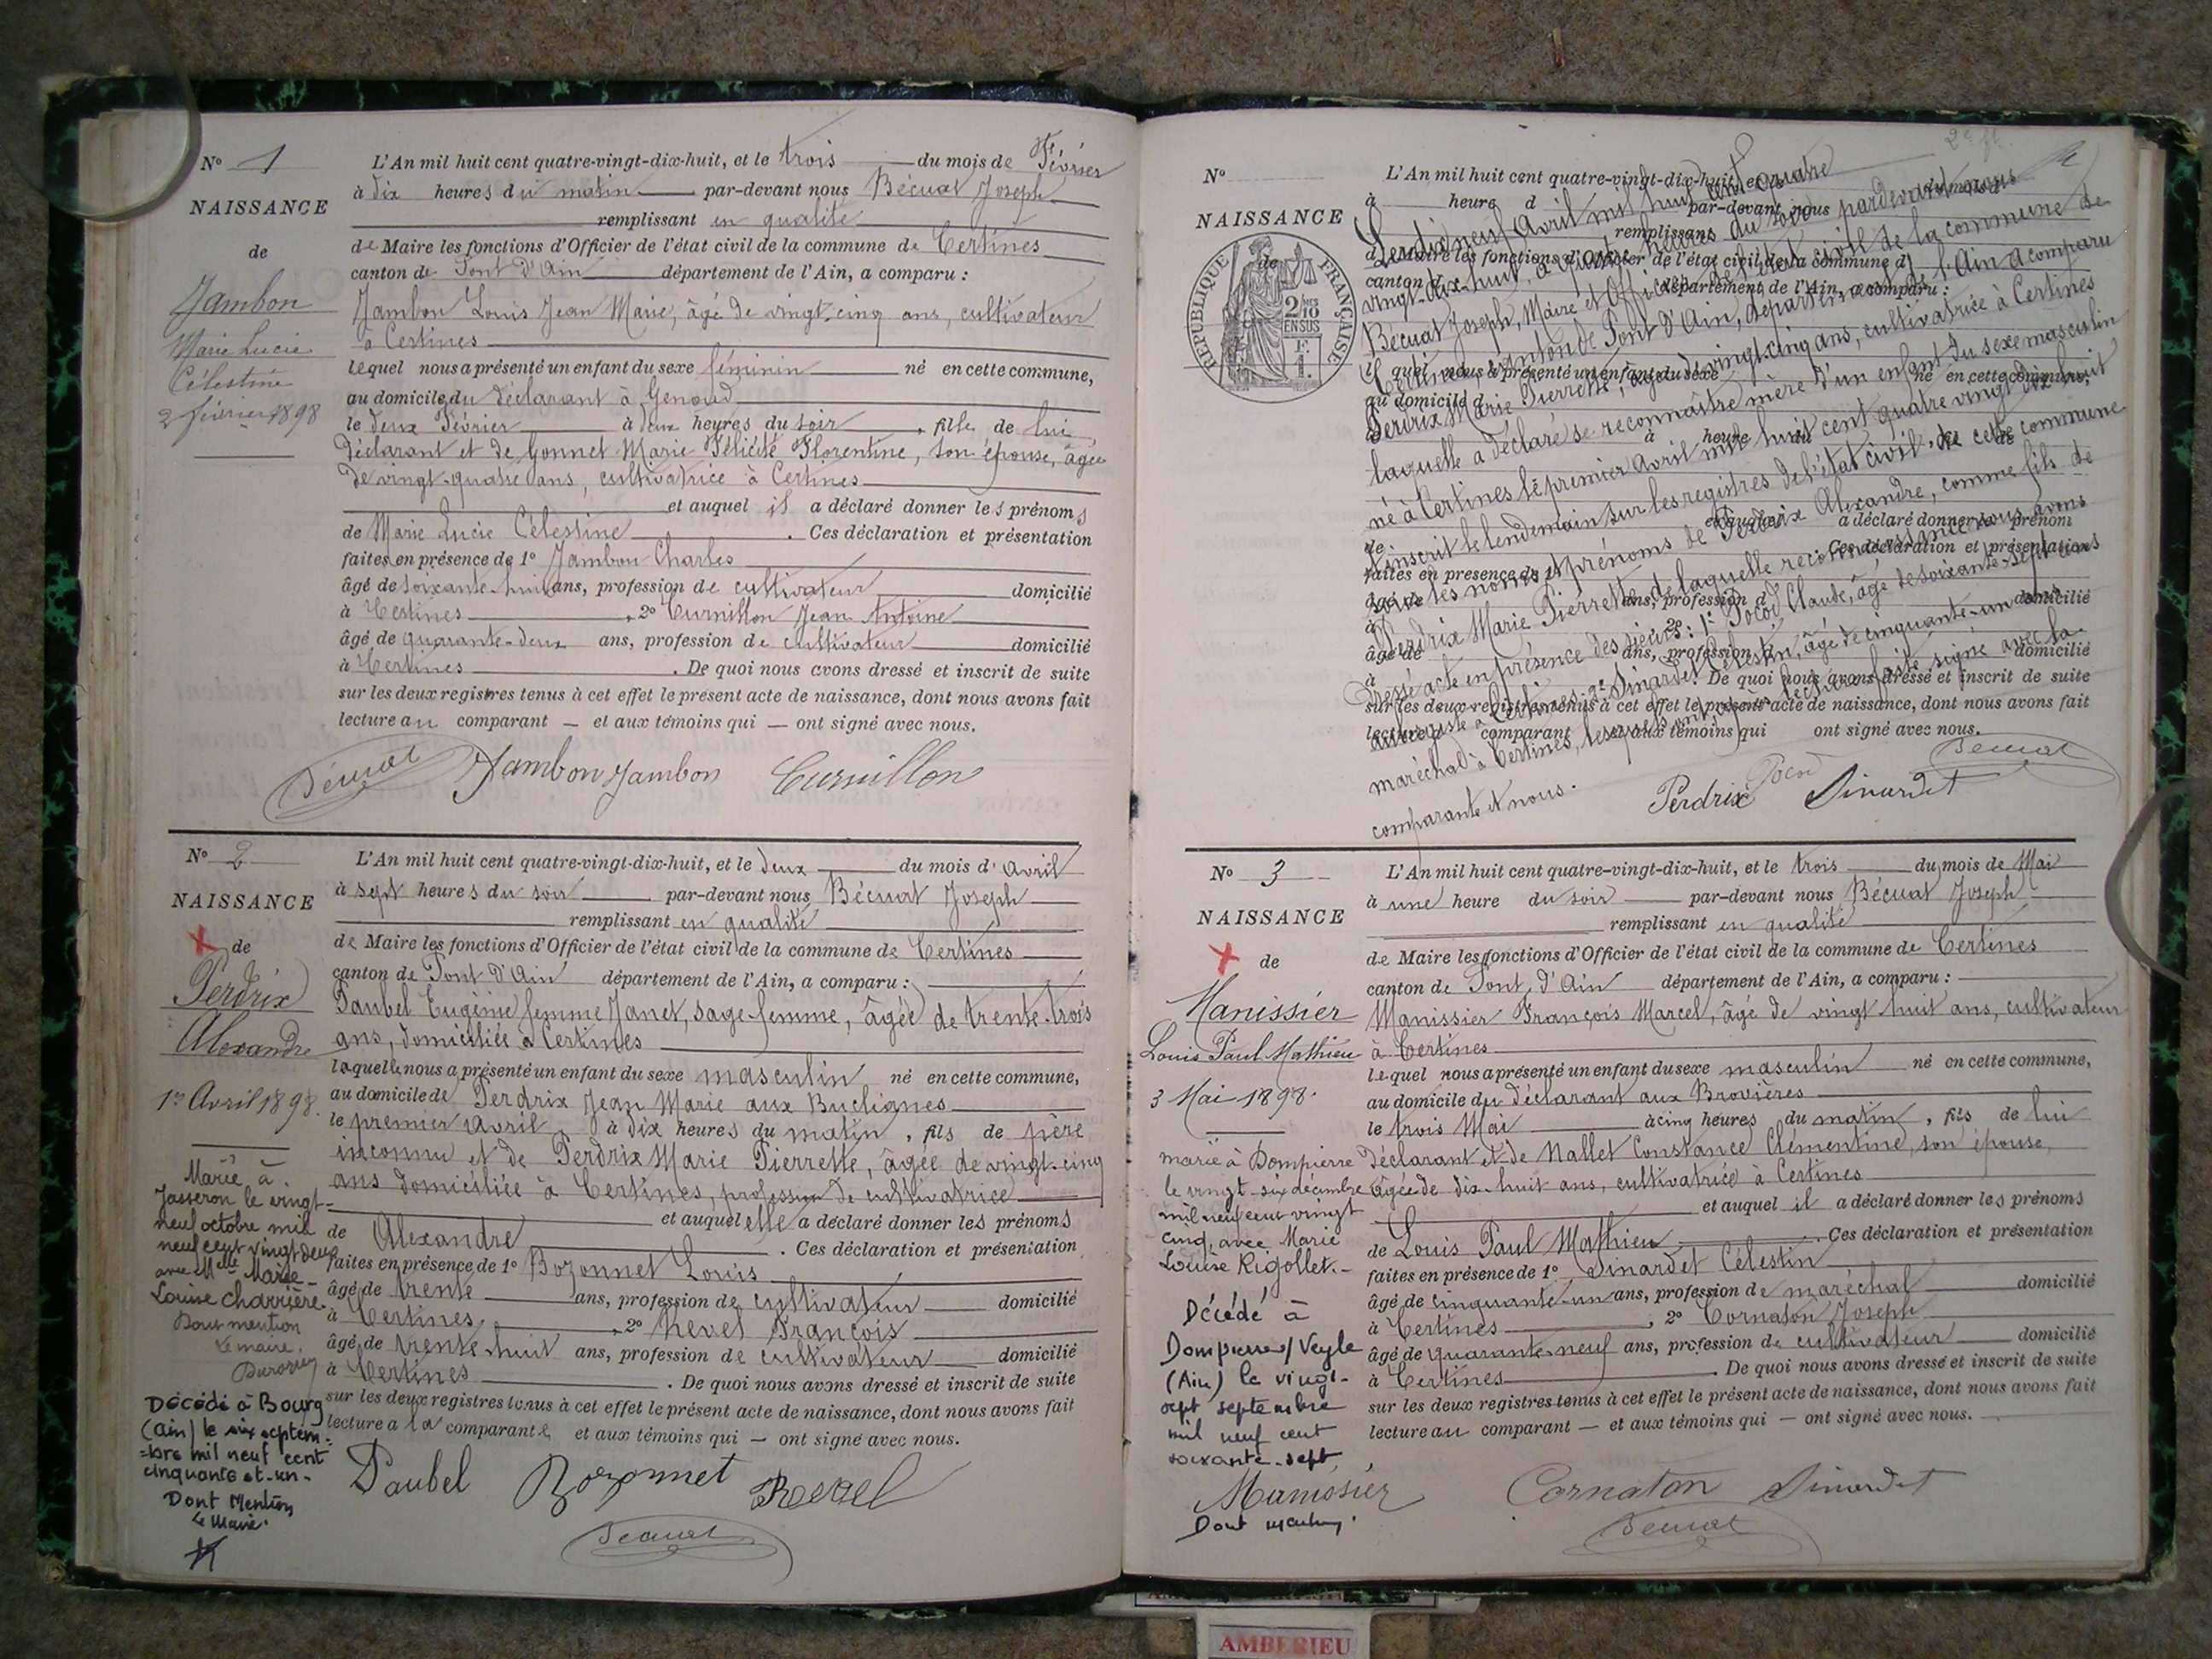 N° 1
NAISSANCE
de
Jambon
Marie Lucie
Célestine
2 février 1898
L'An mil huit cent quatre-vingt-dix-huit, et le trois du mois de Février
à dix heures du matin par-devant nous Bécuat Joseph
remplissant en qualité
de Maire les fonctions d'Officier de l'état civil de la commune de Certines
canton de Pont d'Ain département de l'Ain, a comparu :
Jambon Louis Jean Marie, âgé de vingt-cinq ans, cultivateur
à Certines
lequel nous a présenté un enfant du sexe féminin né en cette commune,
au domicile du déclarant à Genoud
le deux Février à deux heures du soir, fille de lui
déclarant et de Gonnet Marie Félicité Florentine, son épouse, âgée
de vingt-quatre ans, cultivatrice à Certines
et auquel il a déclaré donner les prénoms
de Marie Lucie Célestine. Ces déclaration et présentation
faites en présence de 1° Jambon Charles
âgé de soixante-huit ans, profession de cultivateur domicilié
à Certines, 2° Curnillon Jean Antoine
âgé de quarante-deux ans, profession de cultivateur domicilié
à Certines. De quoi nous avons dressé et inscrit de suite
sur les deux registres tenus à cet effet le présent acte de naissance, dont nous avons fait
lecture au comparant — et aux témoins qui — ont signé avec nous.
Bécuat Jambon Jambon Curnillon
N° 2
NAISSANCE
de
Perdrix
Alexandre
1er Avril 1898.
Marié à
Jasseron le vingt-
neuf octobre mil
neuf cent vingt deux
avec Melle Marie-
Louise Charrière.
Dont mention
Le maire.
Décédé à Bourg
(Ain) le six septem-
=bre mil neuf cent
cinquante et-un-
Dont Mention
Le Maire.
L'An mil huit cent quatre-vingt-dix-huit, et le deux du mois d'avril
à sept heures du soir par-devant nous Bécuat Joseph
remplissant en qualité
de Maire les fonctions d'Officier de l'état civil de la commune de Certines
canton de Pont d'Ain département de l'Ain, a comparu :
Paubel Eugénie femme Janet, sage-femme, âgée de trente-trois
ans, domiciliée à Certines
laquelle nous a présenté un enfant du sexe masculin né en cette commune,
au domicile de Perdrix Jean Marie aux Buclignes
le premier avril, à dix heures du matin, fils de père
inconnu et de Perdrix Marie Pierrette, âgée de vingt-cinq
ans domiciliée à Certines, profession de cultivatrice
et auquel elle a déclaré donner les prénoms
de Alexandre. Ces déclaration et présentation
faites en présence de 1° Bozonnet Louis
âgé de trente ans, profession de cultivateur domicilié
à Certines, 2° Revel François
âgé de trente huit ans, profession de cultivateur domicilié
à Certines. De quoi nous avons dressé et inscrit de suite
sur les deux registres tenus à cet effet le présent acte de naissance, dont nous avons fait
lecture a la comparante et aux témoins qui — ont signé avec nous.
Paubel Bozonnet Revel
Bécuat
2e fl.
N°
NAISSANCE
de
REPUBLIQUE FRANÇAISE
2/10
EN SUS
1F.
L'An mil huit cent quatre-vingt-dix-huit, et le du mois d
à heure d par-devant nous
remplissant
d les fonctions d'Officier de l'état civil de la commune d
canton d département de l'Ain, a comparu :
Le dix neuf Avril mil huit cent quatre
vingt-dix-huit, à quatre heures du soir pardevant nous
Bécuat Joseph, Maire et Officier de l'état civil de la commune de
Certines, canton de Pont d'Ain, département de l'Ain a comparu
Perdrix Marie Pierrette, âgée de vingt-cinq ans, cultivatrice à Certines
laquelle a déclaré se reconnaître mère d'un enfant du sexe masculin
né à Certines le premier avril mil huit cent quatre vingt dix huit
inscrit le lendemain sur les registres de l'état civil de cette commune
sous les noms et prénoms de Perdrix Alexandre, comme fils de
Perdrix Marie Pierrette, de laquelle reconnaissance nous avons
dressé acte en présence des sieurs: 1° Pocod Claude, âgé de soixante-sept ans
à Certines 2° Dinardet Célestin, âgé de cinquante-un ans
maréchal à Certines, lesquels ont, après lecture faite, signé avec la
comparante et nous.
Perdrix Pocod Dinardet Bécuat
N° 3
NAISSANCE
de
Manissier
Louis Paul Mathieu
3 Mai 1898.
marié à Dompierre
le vingt-six décembre
mil neuf cent vingt
cinq avec Marie
Louise Rigollet.-
Décédé à
Dompierre s/ Veyle
(Ain) le vingt-
sept septembre
mil neuf cent
soixante-sept
Dont mention.
L'An mil huit cent quatre-vingt-dix-huit, et le trois du mois de Mai
à une heure du soir par-devant nous Bécuat Joseph
remplissant en qualité
de Maire les fonctions d'Officier de l'état civil de la commune de Certines
canton de Pont d'Ain département de l'Ain, a comparu :
Manissier François Marcel, âgé de vingt huit ans, cultivateur
à Certines
lequel nous a présenté un enfant du sexe masculin né en cette commune,
au domicile du déclarant aux Brovières
le trois Mai à cinq heures du matin, fils de lui
déclarant et de Nallet Constance Clémentine, son épouse,
âgée de dix-huit ans, cultivatrice à Certines
et auquel il a déclaré donner les prénoms
de Louis Paul Mathieu. Ces déclaration et présentation
faites en présence de 1° Dinardet Célestin
âgé de cinquante-un ans, profession de maréchal domicilié
à Certines, 2° Cornaton Joseph
âgé de quarante-neuf ans, profession de cultivateur domicilié
à Certines. De quoi nous avons dressé et inscrit de suite
sur les deux registres tenus à cet effet le présent acte de naissance, dont nous avons fait
lecture au comparant — et aux témoins qui — ont signé avec nous.
Manissier Cornaton Dinardet
Bécuat
AMBERIEU